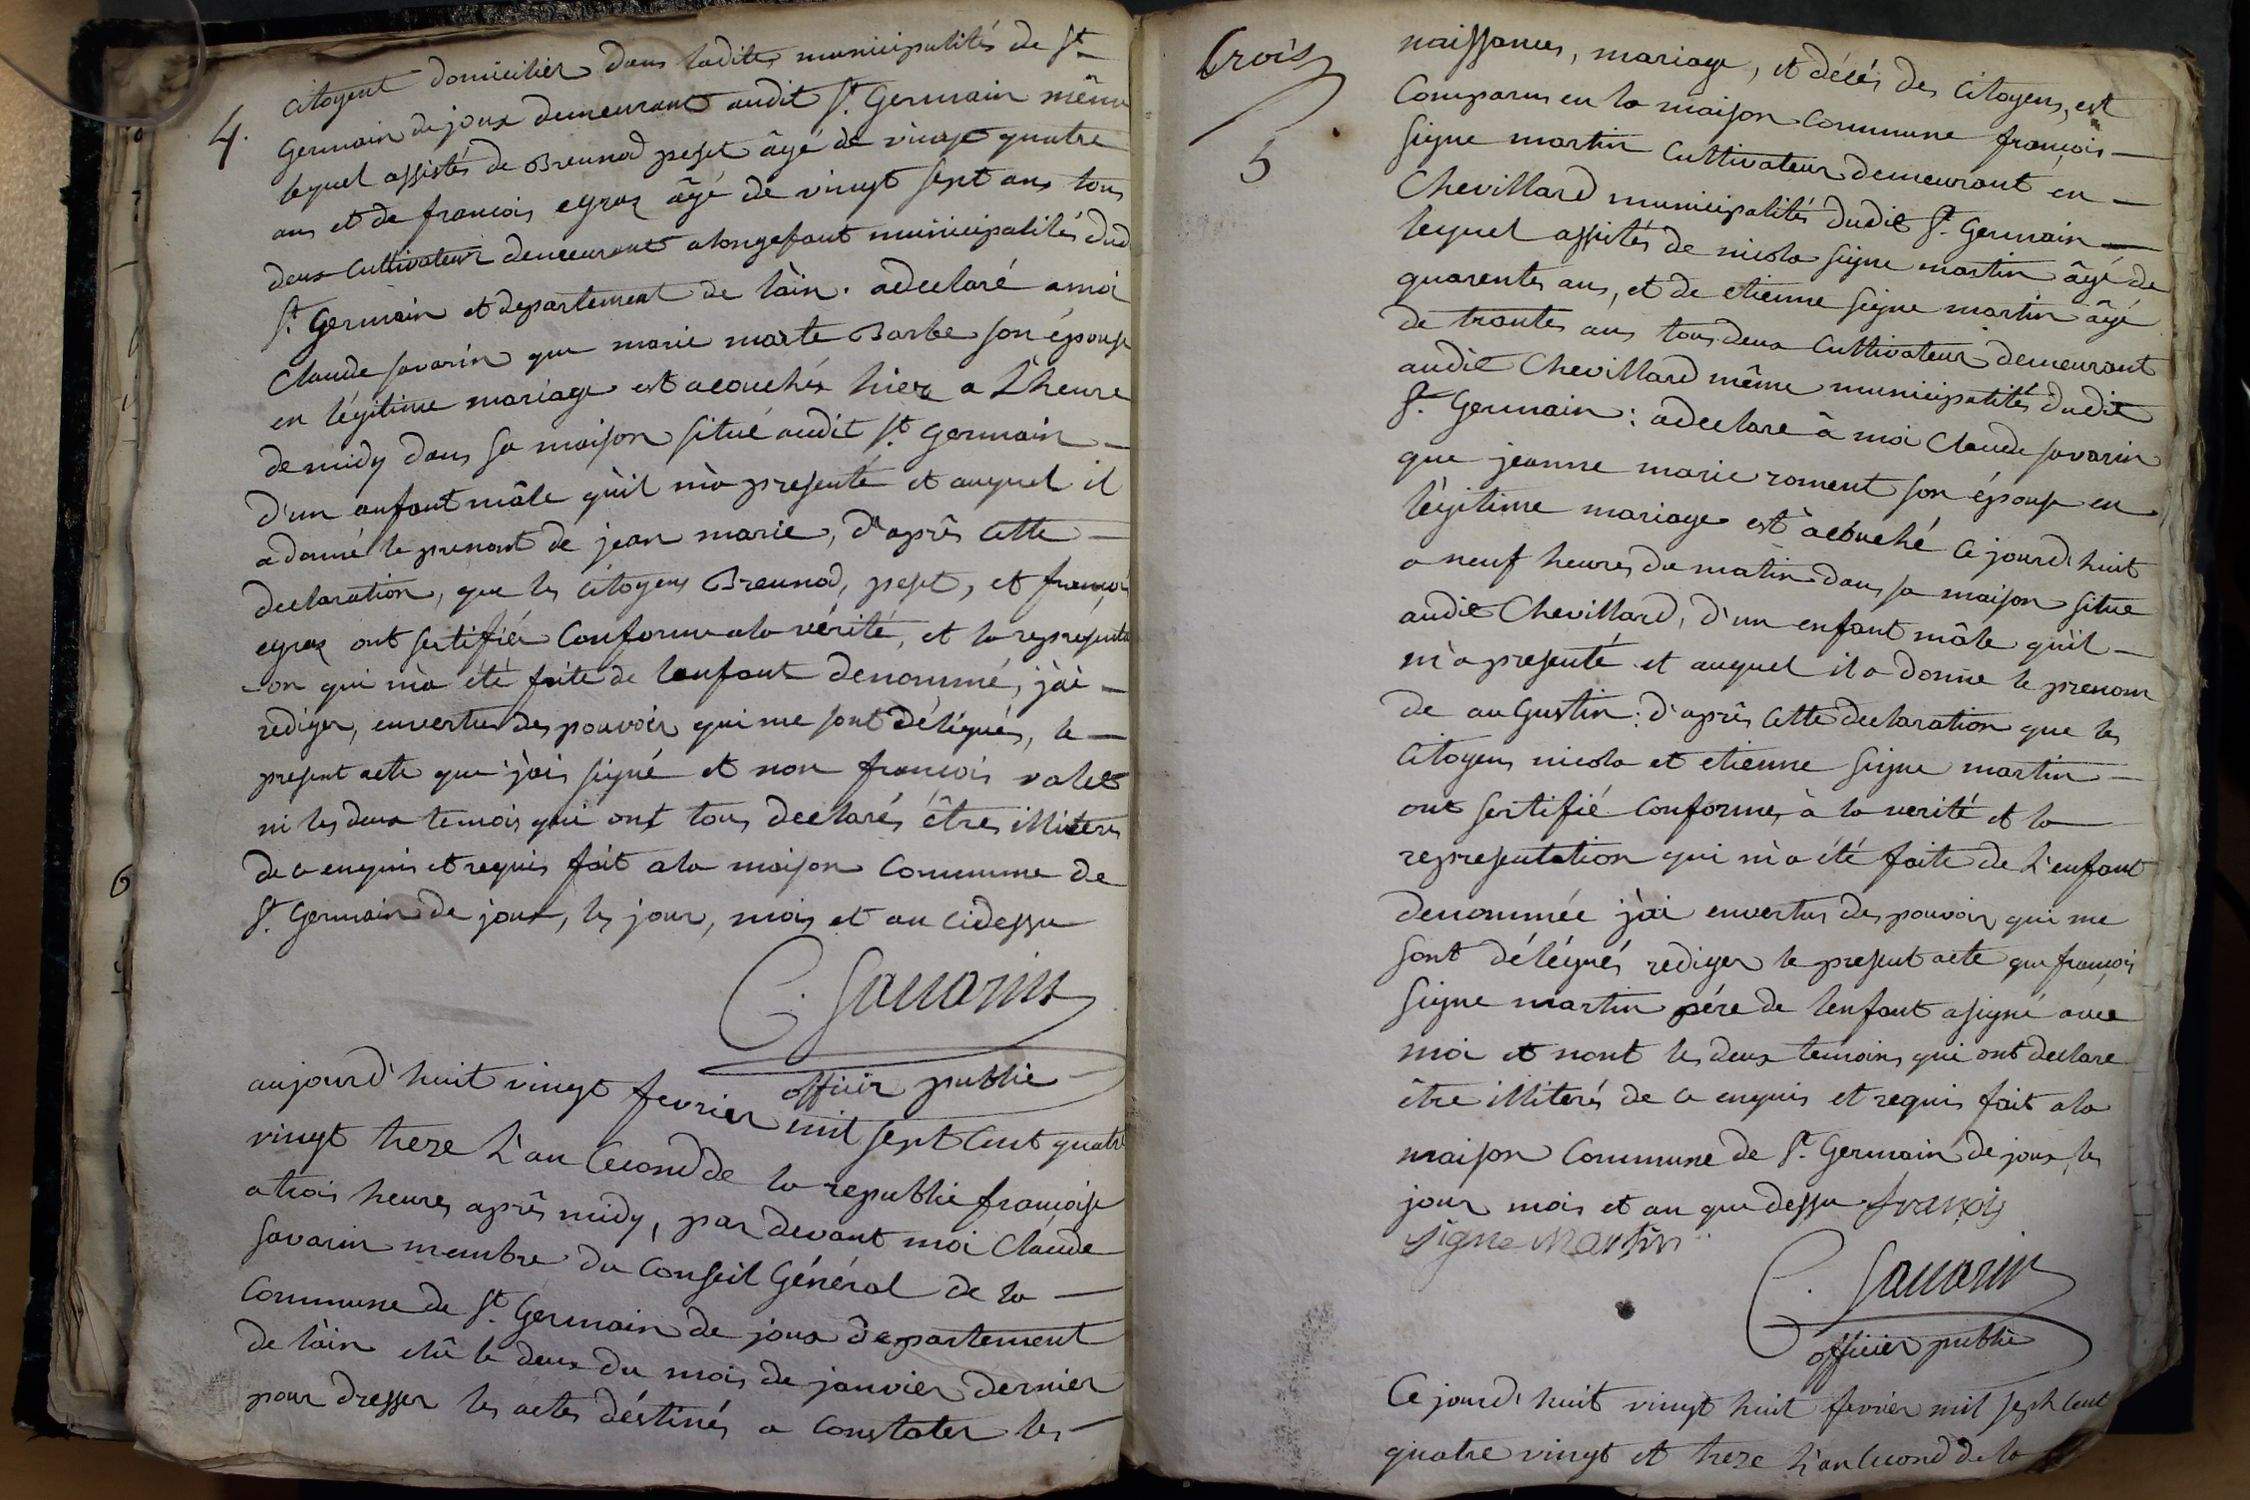 4.
citoyent domicilier dans ladite municipalités de St
Germain de joux demeurant audit St. Germain même
lequel assistés de Breunod peset âgé de vingt quatre
ans et de francois egraz âgé de vingt sept ans tous
deux cultivateur demeurant alongefant municipalités dud
St. Germain et departement de làin. adeclaré amoi
Claude savarin que marie marte Barbe son épouse
en légitime mariage est acouchés hier a L'heure
de midy dans sa maison situé audit St. Germain
d'un anfant mâle qùil mà presenté et auquel il
a donné le prenont de jean marie, d'après cette
declaration, que les citoyens Breunod, peset, et francoi
egraz ont sertifiér conforme ala vérité, et la representa
-on qui mà été faite de lenfant denommé, j'ài
rediger, envertus des pouvoir qui me sont délégués, le
present acte que j'ài signé et non francois valet
ni les deux temois qui ont tous declarés être illiteres
de ce enquis et requis fait ala maison Commune de
St. Germain de joux, les jour, mois et an cidessu
C. Savarin
officier public
aujourd'huit vingt fevrier mil sept cent quatre
vingt treze L'an second de la republie françoise
atrois heures après midy, par devant moi Claude
Savarin membre du Conseil Général de la
Commune de St. Germain de joux departement
de làin elû le deux du mois de janvier dernier
pour dresser les actes déstinés a constater les
trois
5
naissances, mariage, et décés des Citoyens, est
Comparus en la maison commune françois
signe martin Cultivateur demeurant en
Chevillard municipalités dudit St. Germain
lequel assités de nicola signe martin âgé de
quarentes ans, et de etienne signe martin âgé
de trantes ans tous deux Cultivateur demeurant
audit Chevillard même municipalités dudit
St. Germain: adeclare à moi Claude savarin
que jeanne marie roment son épouse en
lègitime mariage est àcouché ce jourd'huit
a neuf heures du matin dans sa maison situe
audit Chevillard, d'un enfant mâle qùil
m'a presenté et auquel il a donne le prenom
de auGustin: d'après cette declaration que les
Citoyens nicola et etienne signe martin
ont sertifié conformes à la verité et la
representation qui m'a été faite de L'enfant
denommée j'ài envertus des pouvoir qui me
sont délégués rediger le present acte que françois
signe martin pére de lenfant asigné avec
moi et nont les deux temoins qui ont declare
être illiterés de ce enquis et requis fait ala
maison Commune de St. Germain de joux, les
jour mois et an que dessu francois
signe Martin
C. Savarin
officier public
Ce jourd'huit vingt huit fevrier mil sept cent
quatre vingt et treze L'an second de la